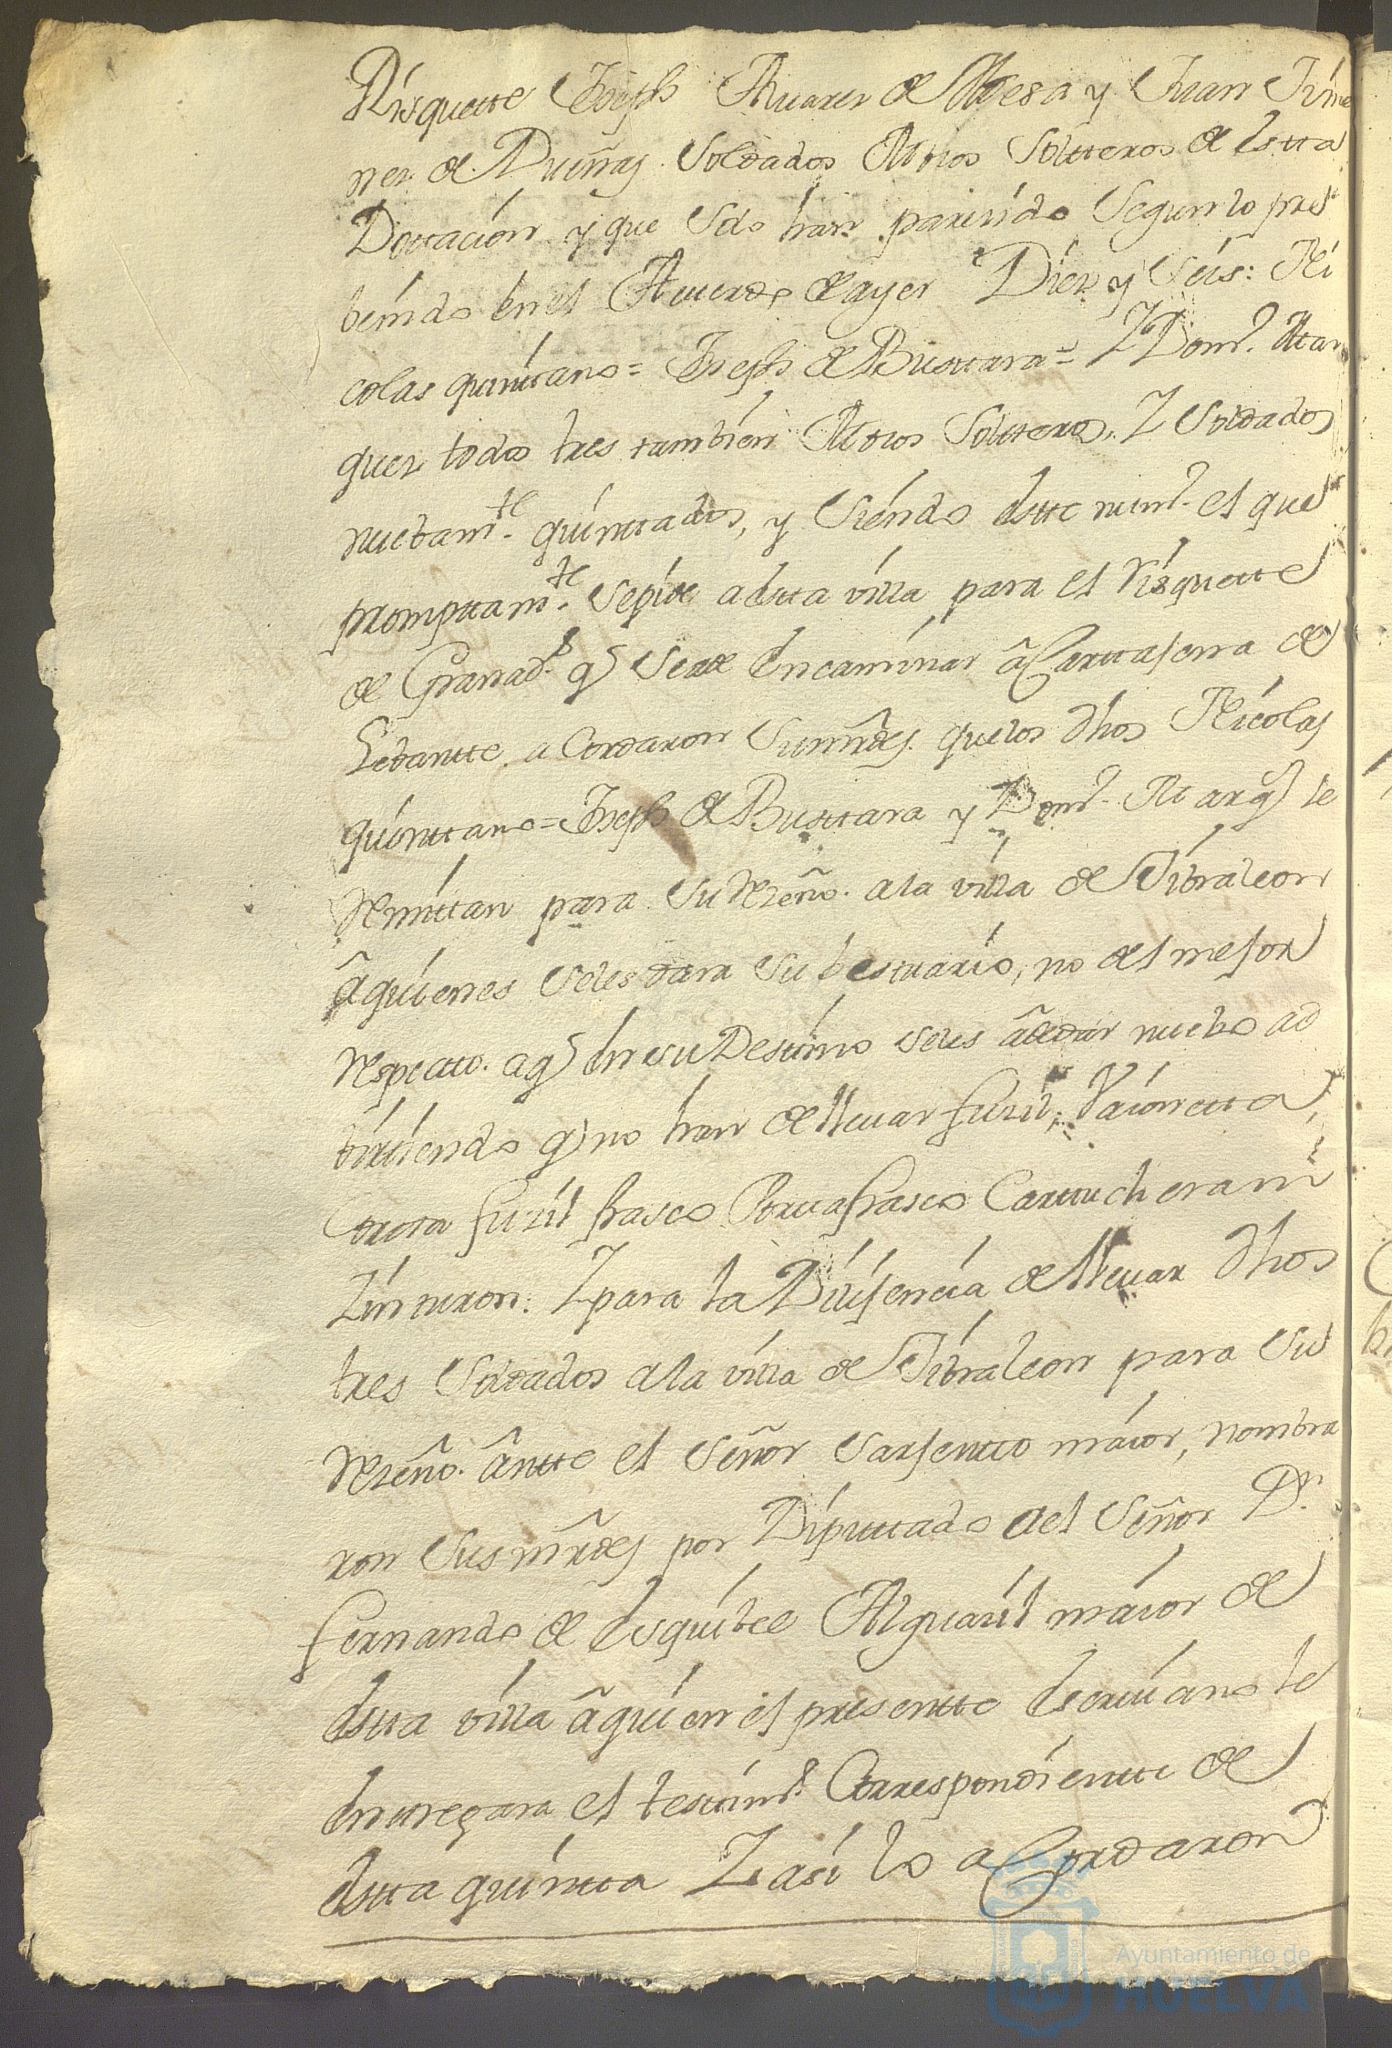 Risquette Joseph Aluarez de Mesa y Juan Jime
nez de Dueñas Soldados Mosos Soltteros de estta
Dottacion y que Solo han parezido Segun lo pre
benido en el Acuerdo de ayer Diez y Seis: Ni
colas quinttano = Joseph de Busttara = Y Domº. Mar
quez todos tres tambien Mosos Soltteros, Y Soldados
nuebamte. quinttados, y Siendo estte numº. el que
prompttamte. Se pide a estta villa para el Risquette
de Granads. q Se a de encaminar â Carttajena de
Lebantte acordaron Sus mrdes. que los dhos Nicolas
quinttano = Joseph de Busttara y Domº. Marqz se
Remittan para Su Rezeño. a la villa de Jibraleon
â quienes Se les dara Su besttuario, no del mejor
respectto. a q en su Desttino Se les â de dar nuebo ad
birtiendo q no han de lleuar fuzil, Vaionetta,
Portta fuzil frasco Portta frasco Carttuchera ni
Zintturon: Y para la Dilijencia de lleuar dhos
tres Soldados a la villa de Jibraleon para Su
Rezeño. ântte el Señor Sarjentto maior, nombra
ron Sus mrdes por Diputtado a el Señor Dn.
fernando de Esquibel Alguazil maior de
estta villa â quien el presentte escriuano le
enttregara el testtimº. Correspondientte de
estta quintta Y asi lo aCordaron
Ayuntamiento de
HUELVA